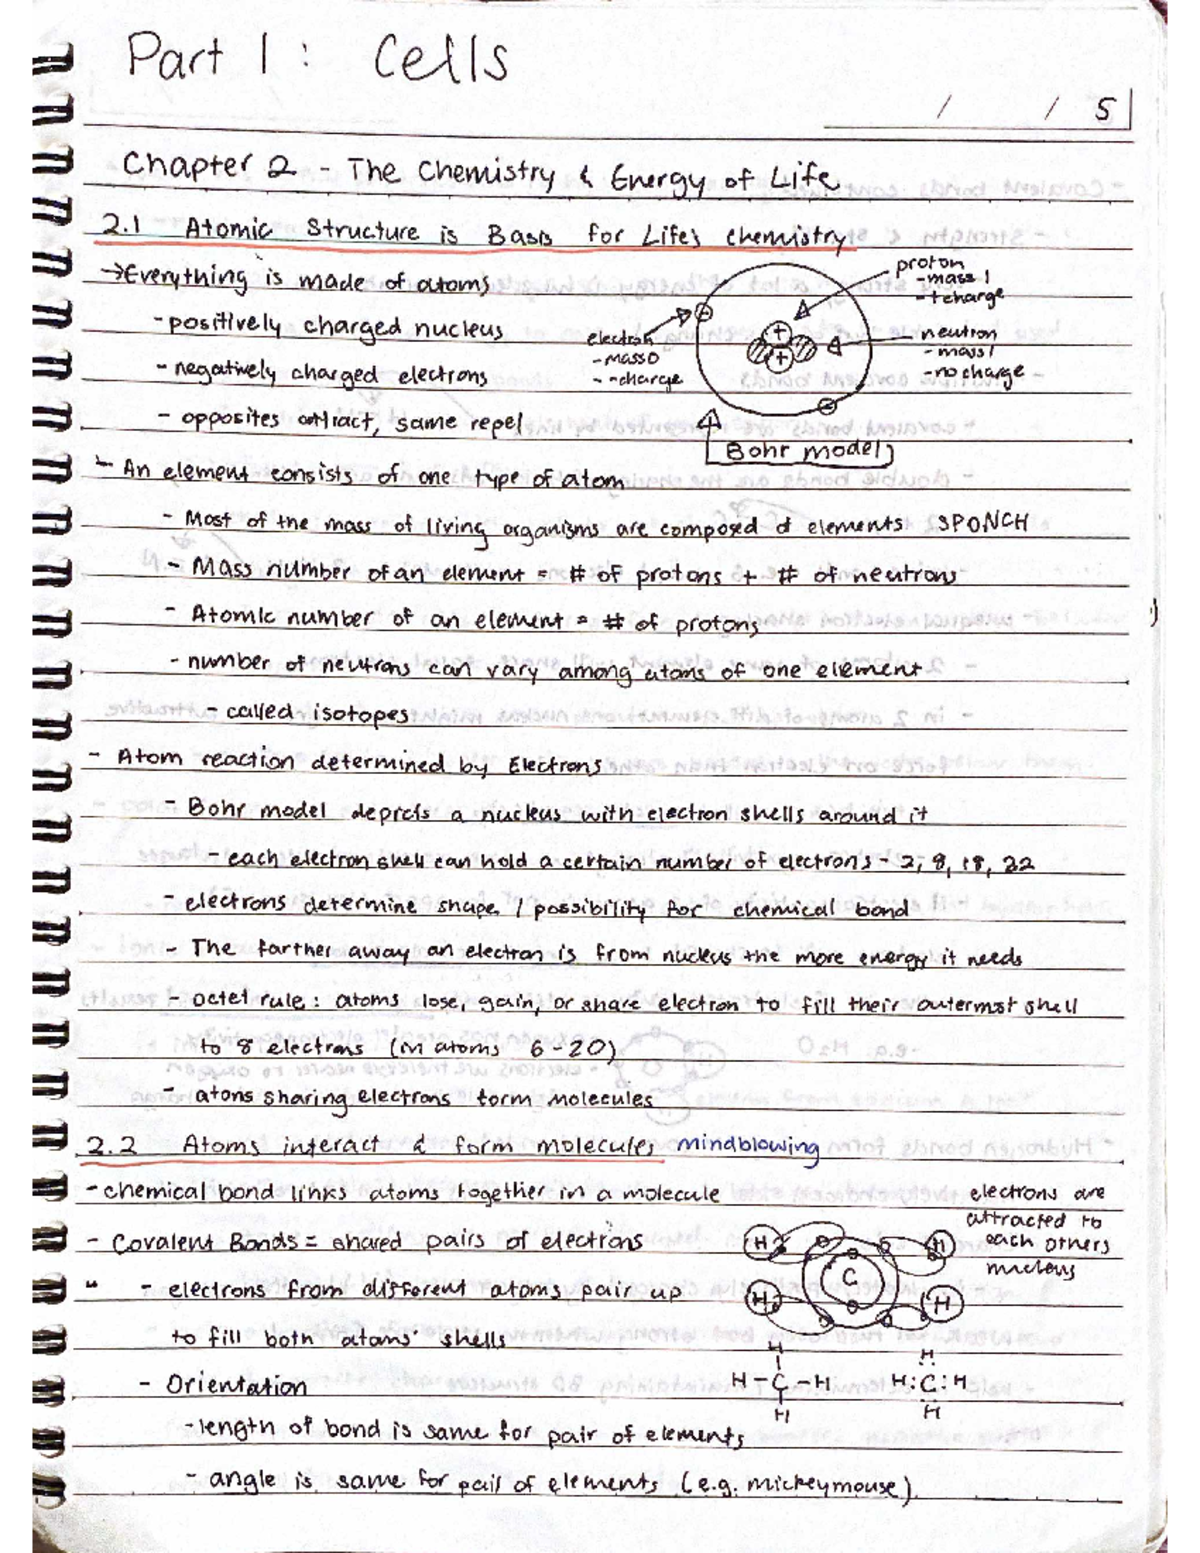 Part 1: Cells
/ / 5
Chapter 2 - The Chemistry & Energy of Life
2.1 Atomic Structure is Basis for Life's chemistry
→Everything is made of atoms
- positively charged nucleus
- negatively charged electrons
- opposites attract, same repel
proton
- mass 1
- + charge
electron
- mass 0
- - charge
neutron
- mass 1
- no charge
+
+
Bohr model
- An element consists of one type of atom
- Most of the mass of living organisms are composed of elements SPONCH
- Mass number of an element = # of protons + # of neutrons
- Atomic number of an element = # of protons
- number of neutrons can vary among atoms of one element
- called isotopes
- Atom reaction determined by Electrons
- Bohr model depicts a nucleus with electron shells around it
- each electron shell can hold a certain number of electrons - 2, 8, 18, 32
- electrons determine shape / possibility for chemical bond
- The farther away an electron is from nucleus the more energy it needs
- octet rule: atoms lose, gain, or share electron to fill their outermost shell
to 8 electrons (in atoms 6-20)
- atoms sharing electrons form molecules
2.2 Atoms interact & form molecules mindblowing
- chemical bond links atoms together in a molecule
- Covalent Bonds = shared pairs of electrons
" - electrons from different atoms pair up
to fill both atoms' shells
electrons are
attracted to
each others
nucleus
H H
C
H H
H H
H-C-H H:C:H
H H
- Orientation
- length of bond is same for pair of elements
- angle is same for pair of elements (e.g. mickeymouse)